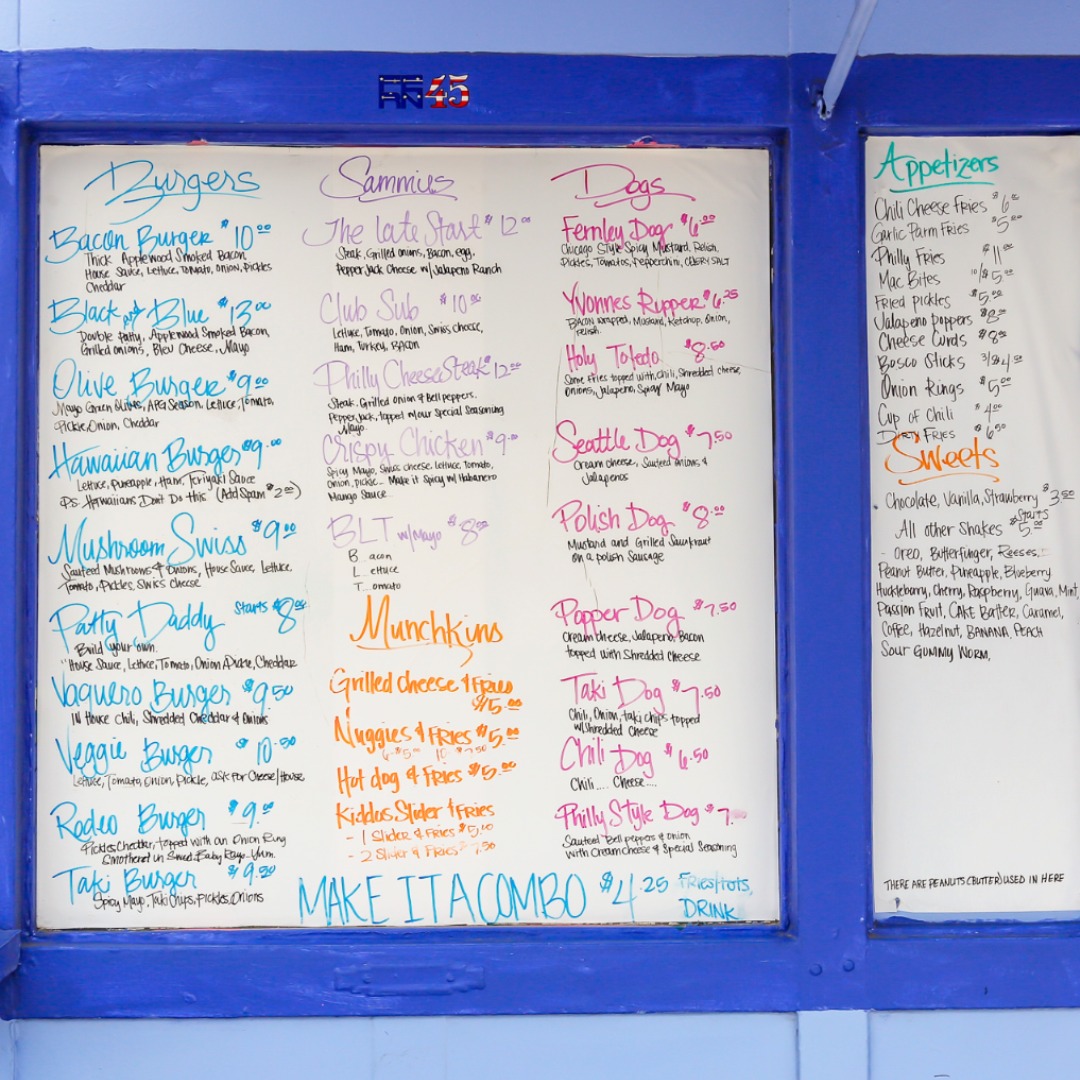 Burgers
Bacon Burger $10.00
Thick Applewood Smoked Bacon
House Sauce, Lettuce, Tomato, Onion, Pickles
Cheddar
Black and Blue $13.00
Double Patty, Applewood Smoked Bacon,
Grilled onions, Bleu Cheese, Mayo
Olive Burger $9.00
Mayo Green Olives, APG Season, Lettuce, Tomato,
Pickle, Onion, Cheddar
Hawaiian Burger $9.00
Lettuce, Pineapple, Ham, Teriyaki Sauce
P.S. Hawaiians Don't Do this (Add Spam $2.00)
Mushroom Swiss $9.00
Sauteed Mushrooms & Onions, House Sauce, Lettuce,
Tomato, Pickles, Swiss Cheese
Patty Daddy Starts $8.00
Build your own.
"House Sauce, Lettuce, Tomato, Onion, Pickle, Cheddar
Vaquero Burger $9.50
IN House Chili, Shredded Cheddar & Onions
Veggie Burger $10.50
Lettuce, Tomato, Onion, Pickle, ask for Cheese/House
Rodeo Burger $9.00
Pickles, Cheddar, topped with an Onion Ring
Smothered in Sweet Baby Rays - Yum.
Taki Burger $9.50
Spicy Mayo, Taki Chips, Pickles, Onions
Sammies
The Late Start $12.00
Steak, Grilled onions, Bacon, egg,
Pepper Jack Cheese w/ Jalapeno Ranch
Club Sub $10.00
Lettuce, Tomato, Onion, Swiss cheese,
Ham, Turkey, BACON
Philly CheeseSteak $12.00
Steak, Grilled Onion & Bell peppers,
Pepper Jack, topped in our Special Seasoning
Mayo
Crispy Chicken $9.00
Spicy Mayo, Swiss cheese, Lettuce, Tomato,
Onion, pickle... Make it Spicy w/ Habanero
Mango Sauce
BLT w/Mayo $8.00
B..acon
L..ettuce
T..omato
Munchkins
Grilled cheese & Fries
$5.00
Nuggies & FRIES $5.00
6-$5.00 10-$7.50
Hot dog & FRIES $5.00
Kiddos Slider & FRIES
- 1 Slider & Fries $5.00
- 2 Slider & Fries $7.50
Dogs
Fernley Dog $6.00
Chicago Style Spicy Mustard, Relish,
Pickles, Tomatos, Pepperchini, CELERY SALT
Yvonnes Ripper $6.25
BACON wrapped, Mustard, Ketchup, Onion,
relish
Holy Toledo $8.50
Some Fries topped with, Chili, Shredded cheese,
Onions, Jalapeno, Spicy Mayo
Seattle Dog $7.50
Cream cheese, Sauteed onions &
Jalapenos
Polish Dog $8.00
Mustard and Grilled Saurkraut
on a polish Sausage
Popper Dog $7.50
Cream cheese, Jalapeno, Bacon
topped with Shredded Cheese
Taki Dog $7.50
Chili, Onion, taki chips topped
w/Shredded Cheese
Chili Dog $6.50
Chili.... Cheese....
Philly Style Dog $7.
Sauteed Bell peppers & onion
with Cream cheese & Special Seasoning
MAKE IT A COMBO $4.25 Fries/tots,
DRINK
Appetizers
Chili Cheese Fries $6.00
Garlic Parm Fries $5.00
Philly Fries $11.00
Mac Bites 10/$5.00
Fried pickles $5.00
Jalapeno poppers $8.00
Cheese Curds $8.00
Bosco Sticks 3/$4.00
Onion Rings $5.00
Cup of Chili $4.00
Dirty FRIES $6.50
Sweets
Chocolate, Vanilla, Strawberry $3.50
All other Shakes Starts $5.00
- Oreo, Butterfinger, Reeses,
Peanut Butter, Pineapple, Blueberry
Huckleberry, Cherry, Raspberry, Guava, Mint,
Passion Fruit, CAKE Batter, Caramel,
Coffee, Hazelnut, BANANA, PEACH
Sour Gummy Worm,
THERE ARE PEANUTS (BUTTER) USED IN HERE